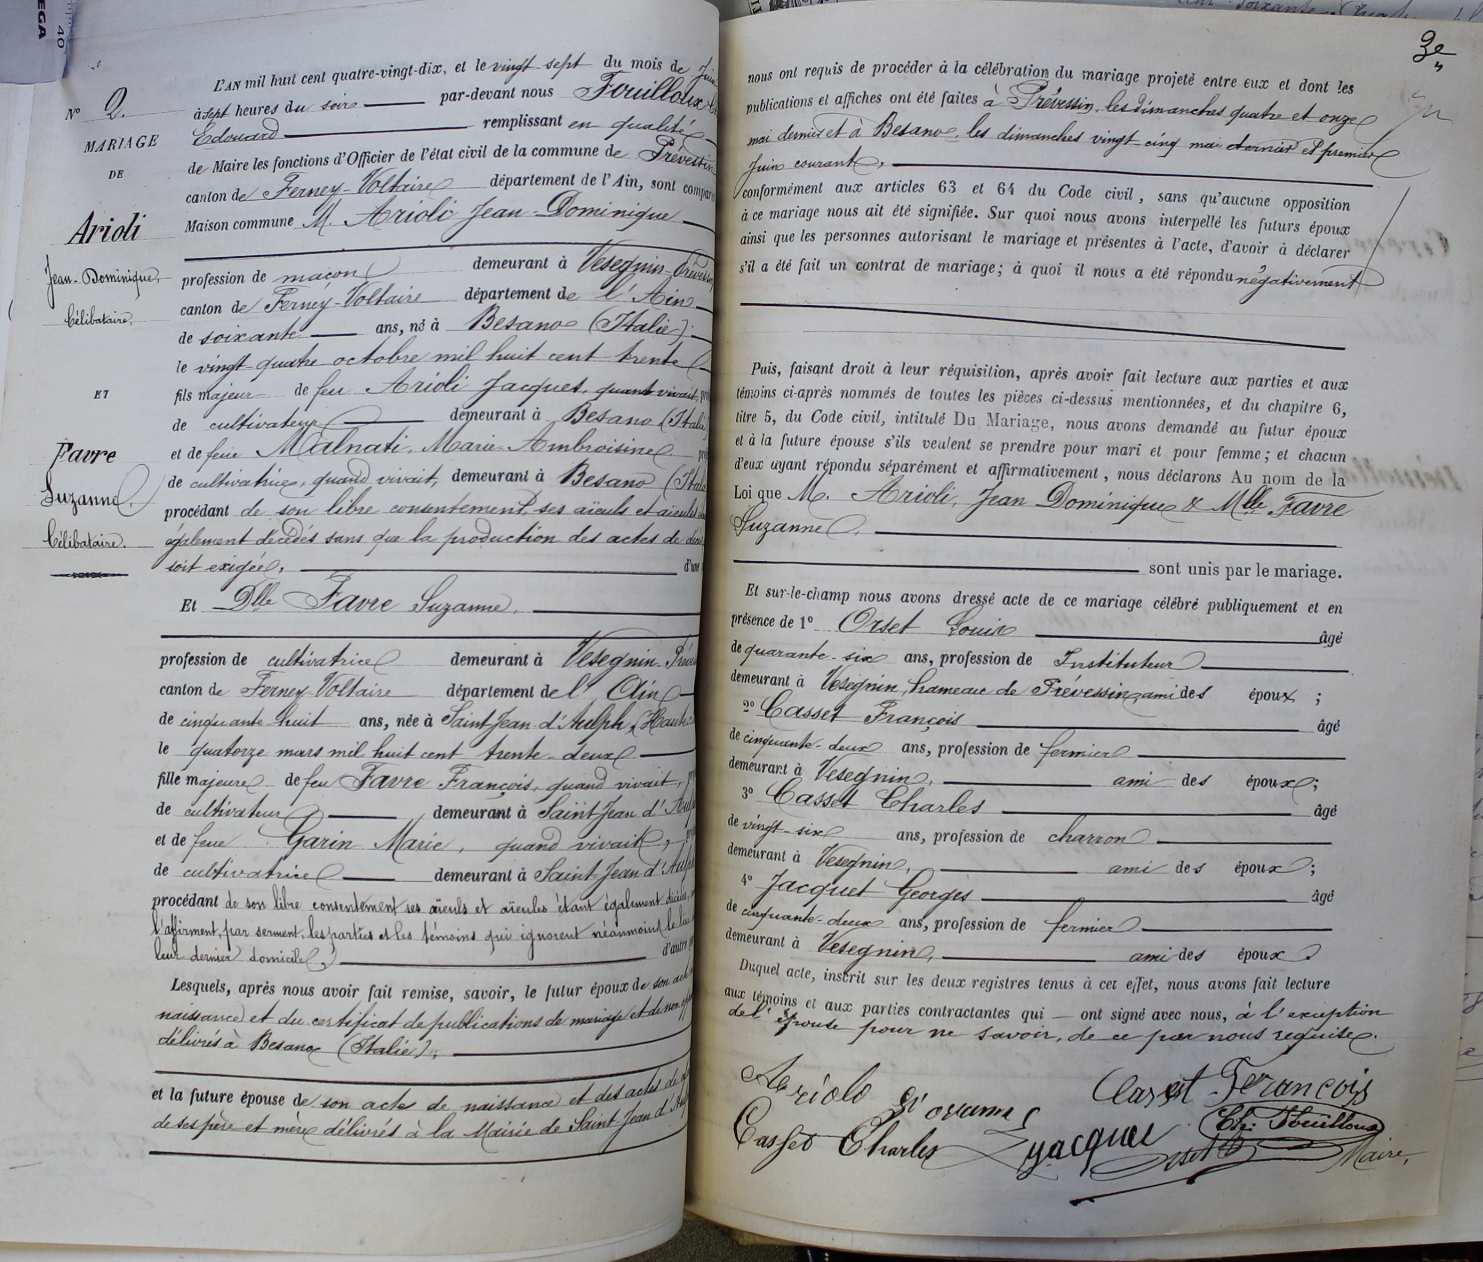 N° 2.
MARIAGE
DE
Arioli
Jean-Dominique,
Célibataire.
ET
Favre
Suzanne.
Célibataire.
L'AN mil huit cent quatre-vingt-dix, et le vingt-sept du mois de Juin
à sept heures du soir par-devant nous Fouilloux
Edouard remplissant en qualité
de Maire les fonctions d'Officier de l'état civil de la commune de Prévessin
canton de Ferney-Voltaire département de l'Ain, sont compar
Maison commune M. Arioli Jean-Dominique
profession de maçon demeurant à Vesegnin-Prévessin
canton de Ferney-Voltaire département de l'Ain
de soixante ans, né à Besano (Italie)
le vingt-quatre octobre mil huit cent trente
fils majeur de feu Arioli Jacques, quand vivait,
de cultivateur demeurant à Besano (Italie
et de feue Malnati, Marie-Ambroisine
de cultivatrice, quand vivait, demeurant à Besano (Itali
procédant de son libre consentement, ses aïeuls et aïeules
également décédés sans que la production des actes de décès
soit exigée, d'une
Et Dlle Favre Suzanne,
profession de cultivatrice demeurant à Vesegnin-Préves
canton de Ferney-Voltaire département de l'Ain
de cinquante-huit ans, née à Saint Jean d'Aulph, (Haute
le quatorze mars mil huit cent trente-deux
fille majeure de feu Favre François, quand vivait,
de cultivateur demeurant à Saint Jean d'Aulph
et de feue Garin Marie, quand vivait,
de cultivatrice demeurant à Saint Jean d'Aulph
procédant de son libre consentement ses aïeuls et aïeules étant également décédés,
l'affirment, par serment, les parties et les témoins qui ignorent néanmoins le lieu
leur dernier domicile, d'autre
Lesquels, après nous avoir fait remise, savoir, le futur époux de son acte
naissance et du certificat de publications de mariage et de non
délivrés à Besano (Italie);
et la future épouse de son acte de naissance et des actes de
de ses père et mère délivrés à la Mairie de Saint Jean d'Aulph
3e
nous ont requis de procéder à la célébration du mariage projeté entre eux et dont les
publications et affiches ont été faites à Prévessin, les dimanches quatre et onze
mai dernier et à Besano, les dimanches vingt-cinq mai dernier et premier
Juin courant,
conformément aux articles 63 et 64 du Code civil, sans qu'aucune opposition
à ce mariage nous ait été signifiée. Sur quoi nous avons interpellé les futurs époux
ainsi que les personnes autorisant le mariage et présentes à l'acte, d'avoir à déclarer
s'il a été fait un contrat de mariage; à quoi il nous a été répondu négativement
Puis, faisant droit à leur réquisition, après avoir fait lecture aux parties et aux
témoins ci-après nommés de toutes les pièces ci-dessus mentionnées, et du chapitre 6,
titre 5, du Code civil, intitulé Du Mariage, nous avons demandé au futur époux
et à la future épouse s'ils veulent se prendre pour mari et pour femme; et chacun
d'eux ayant répondu séparément et affirmativement, nous déclarons Au nom de la
Loi que M. Arioli, Jean Dominique & Mlle Favre
Suzanne,
sont unis par le mariage.
Et sur-le-champ nous avons dressé acte de ce mariage célébré publiquement et en
présence de 1° Orset Louis âgé
de quarante-six ans, profession de Instituteur
demeurant à Vesegnin, hameau de Prévessin, ami des époux;
2° Casset François âgé
de cinquante-deux ans, profession de fermier
demeurant à Vesegnin, ami des époux;
3° Casset Charles âgé
de vingt-six ans, profession de charron
demeurant à Vesegnin, ami des époux;
4° Jacquet Georges âgé
de cinquante-deux ans, profession de fermier
demeurant à Vesegnin, ami des époux.
Duquel acte, inscrit sur les deux registres tenus à cet effet, nous avons fait lecture
aux témoins et aux parties contractantes qui ont signé avec nous, à l'exception
de l'épouse pour ne savoir, de ce par nous requise.
Casset François
Casset Charles
Maire,